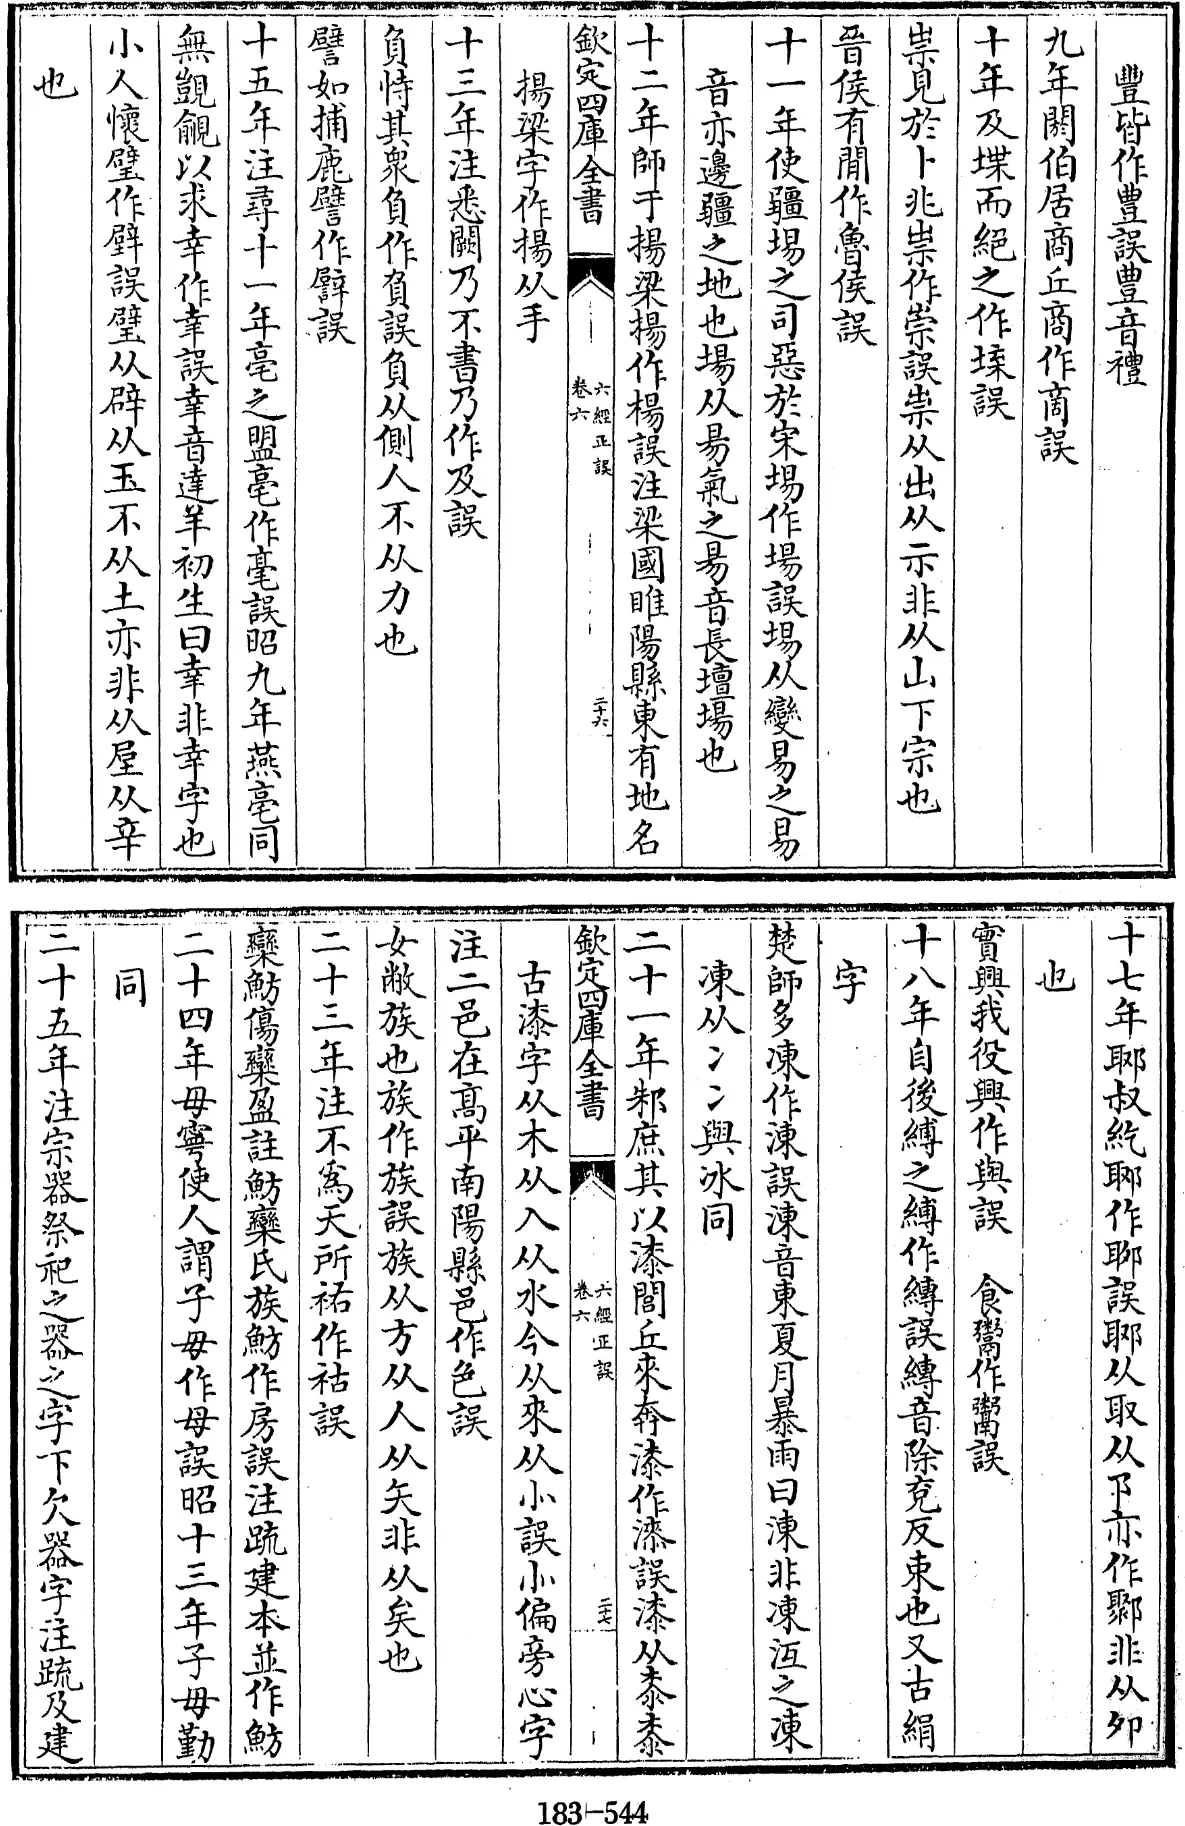 豐皆作豊誤豊音禮
九年閼伯居商丘商作啇誤
十年及堞而絕之作㙛誤
祟見於卜兆祟作崇誤祟从出从示非从山下宗也
晉侯有間作魯侯誤
十一年使疆埸之司惡於宋埸作場誤埸从變易之易
音亦邊疆之地也場从昜氣之昜音長壇場也
十二年師于揚梁揚作楊誤注梁國睢陽縣東有地名
欽定四庫全書
六經正誤
卷六
二十六
揚梁字作揚从手
十三年注悉闕乃不書乃作及誤
負恃其衆負作䝿誤負从側人不从力也
譬如捕鹿譬作礕誤
十五年注尋十一年亳之盟亳作毫誤昭九年燕亳同
無覬覦以求幸作㚔誤㚔音達羊初生曰㚔非幸字也
小人懷璧作壁誤璧从辟从玉不从土亦非从𡱁从辛
也
十七年郰叔紇郰作聊誤郰从取从卩亦作鄹非从卯
也
實興我役興作與誤　食鬻作鬻誤
十八年自後縛之縛作縳誤縳音除兗反束也又古絹
字
楚師多凍作涷誤涷音東夏月暴雨曰涷非凍沍之凍
凍从冫冫與冰同
二十一年邾庶其以漆閭丘來奔漆作㴃誤漆从桼桼
欽定四庫全書
六經正誤
卷六
二十七
古漆字从木从入从水今从來从小誤㣺偏旁心字
注二邑在高平南陽縣邑作色誤
女敝族也族作㫎誤族从方从人从矢非从矣也
二十三年注不為天所祐作祜誤
欒魴傷欒盈註魴欒氏族魴作房誤注疏建本並作魴
二十四年毋寧使人謂子毋作母誤昭十三年子毋勤
同
二十五年注宗器祭祀之器之字下欠器字注疏及建
183-544